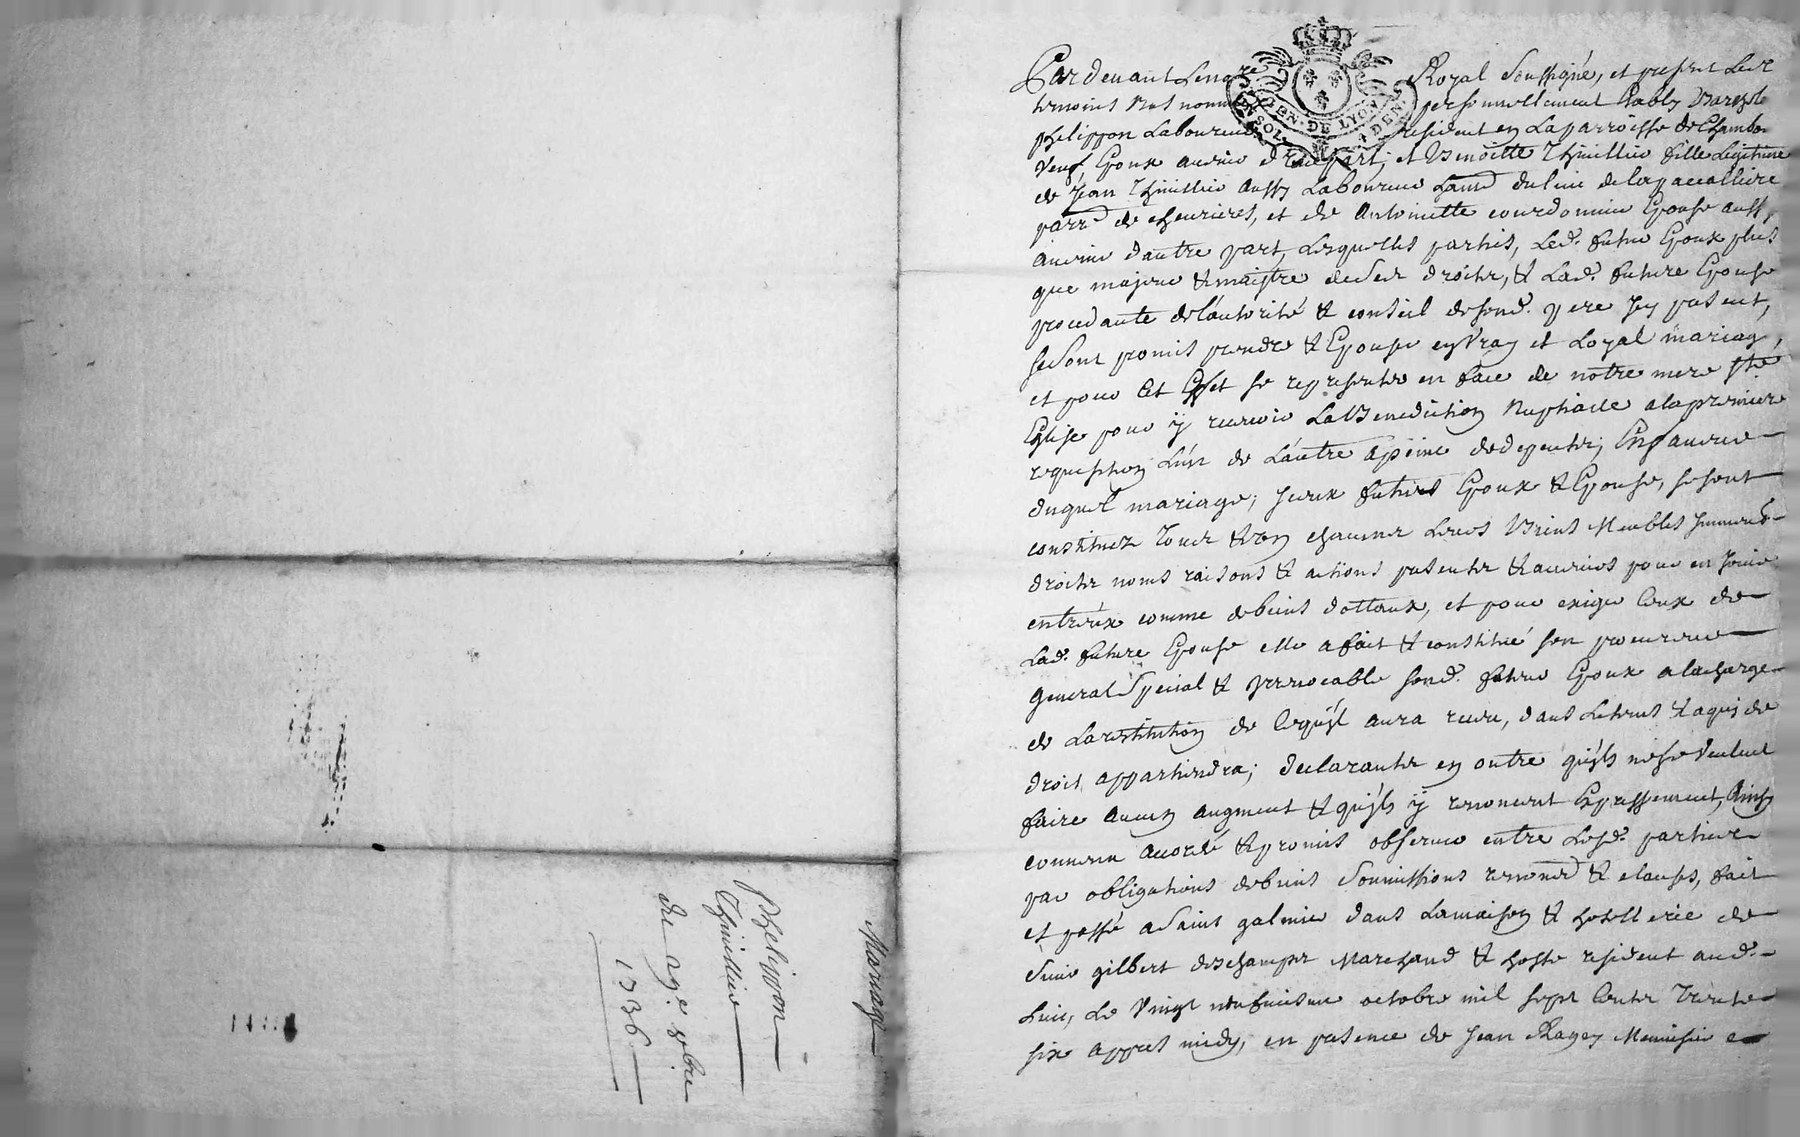 Mariage
Phelippon
Thuillier
du 29e. 8bre
1736
GEN. DE LYON
UN SOL 4 DEN.
Pardevant Le no.re Royal soussigné, et present Les
temoins bas nommes personnellement Estably
phelippon Laboureur resident en La parroisse de Chambo
veuf, Epoux avenir d'une part; et Benoitte Thuillier fille Legitime
de Jean Thuillier aussy Laboureur du lieu de
parr.e de chevrieres, et de Antoinette Epouse aussy
avenir d'autre part, Lesquelles parties, Led. futur Epoux plus
que majeur & maistre de ses droits, & Lad. future Epouse
procedante de l'autorité & conseil de sond. pere icy present,
se sont promis prendre & Epouser en vray et Loyal mariage,
et pour cet Effet se representer en face de notre mere ste
Eglise pour ÿ recevoir La Benediction Nuptialle a la premiere
requisition L'un de L'autre a peine de depents; En faveur
duquel mariage; iceux futurs Epoux & Epouse, se sont
constituez tous & un chacuns Leurs Biens Meubles immeub.
droits noms raisons & actions presents & avenirs pour en jouir
entr'eux comme de biens dottaux, et pour exiger ceux de
Lad. future Epouse elle a fait & constitué son procureur
general special & yrrevocable sond. futur Epoux a la charge
de La restitution de ce qu'jl aura receu, dans Le temps & a qui de
droit appartiendra; declarants en outre qu'jls ne se veulent
faire aucun augment & qu'jls ÿ renoncent Expressement, Ainsy
convenu accordé & promis observer entre Lesd. parties
par obligations de biens soumissions renond & clauses, fait
et passé a Saint galmier dans La maison & hotellerie de
Sieur gilbert deschamps Marchand & hoste resident aud.
Lieu, Le vingt neufviesme octobre mil sept Cents Trente
six appres midy, en presence de Jean Ragey Menuisier